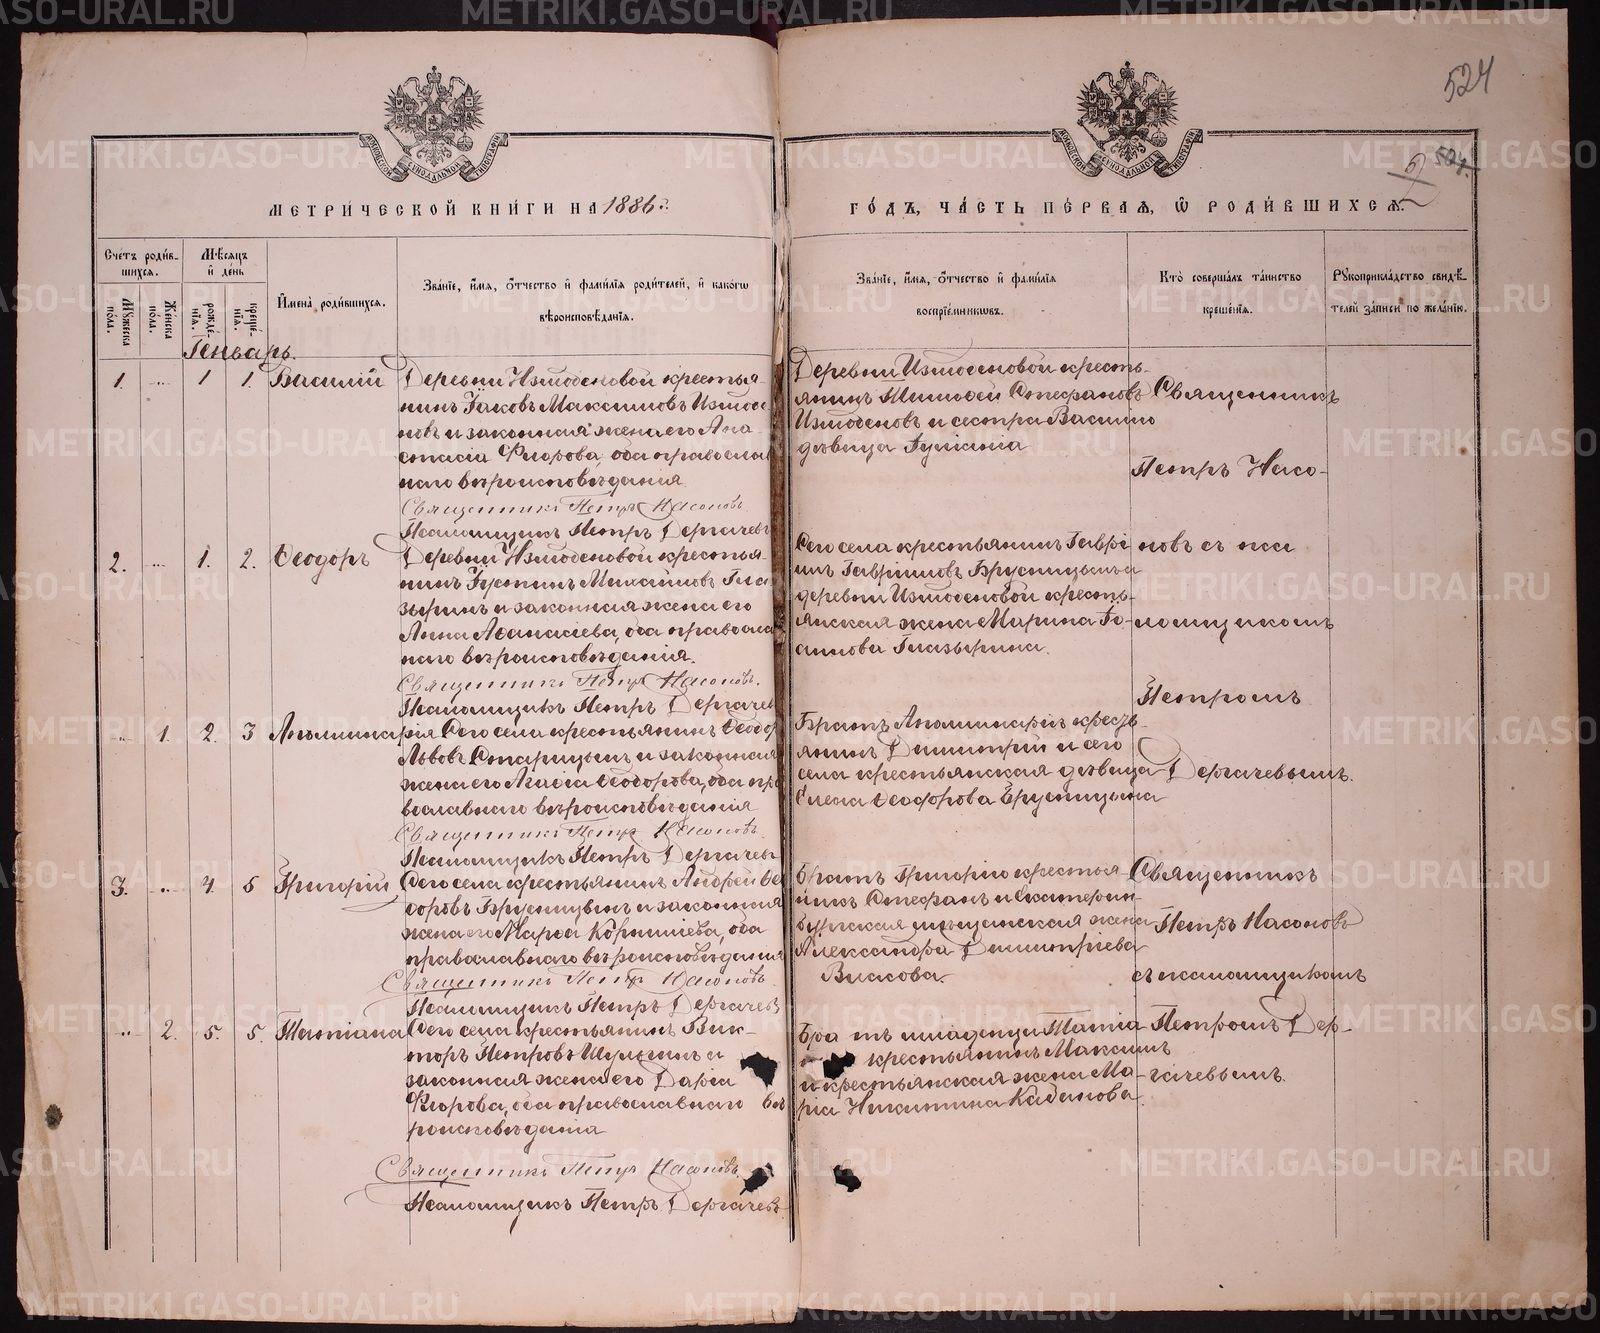 524
524.
5
МОСКОВСКОЙ СѴНОДАЛЬНОЙ ТИПОГРАФІИ
МОСКОВСКОЙ СѴНОДАЛЬНОЙ ТИПОГРАФІИ
МЕТРИ́ЧЕСКОЙ КНИ́ГИ НА 1886 г.
ГО́ДЪ, ЧА́СТЬ ПЕ́РВАЯ, Ѡ РОДИ́ВШИХСЯ.
Сче́тъ роди́в-
шихся.
Мѣ́сяцъ
и҆ де́нь
Му́жеска
по́ла.
Же́нска
по́ла.
рожде́-
нія.
креще́-
нія.
И҆мена̀ роди́вшихся.
Зва́ніе, и҆́мя, ѻ҆́тчество и҆ фами́лія роди́телей, и҆ како́гѡ
вѣроисповѣ́данія.
Зва́ніе, и҆́мя, ѻ҆́тчество и҆ фами́лія
воспріе́мниковъ.
Кто̀ соверша́лъ та́инство
креще́нія.
Рукоприкла́дство свидѣ́-
телей за́писи по жела́нію.
Генварь.
1. ... 1 1. Василій
Деревни Измоденовой крестья-
нинъ Іаковъ Максимовъ Измоде
новъ и законная жена его Ана-
стасія Флорова, оба православ
наго вѣроисповѣданія.
Священникъ Петръ Насоновъ.
Псаломщикъ Петръ Дергачевъ
Деревни Измоденовой кресть-
янинъ Тимофей Стефановъ
Измоденовъ и сестра Василію
дѣвица Іуліанія
Священникъ
Петръ Насо-
2. ... 1. 2. Ѳеодоръ
Деревни Измоденовой крестья-
нинъ Іустинъ Михайловъ Гла
зыринъ и законная жена его
Анна Аѳанасіева, оба православ
наго вѣроисповѣданія.
Священникъ Петръ Насоновъ.
Псаломщикъ Петръ Дергачев
Сего села крестьянинъ Гаврі
илъ Гавріиловъ Брусницынъ и
деревни Измоденовой кресть-
янская жена Марина Іо-
аннова Глазырина.
новъ съ пса
ломщикомъ
Петромъ
Дергачевымъ.
... 1. 2. 3 Апполинарія
Сего села крестьянинъ Ѳеодор
Львовъ Старицынъ и законная
жена его Агаѳія Ѳеодорова, оба пра
вославнаго вѣроисповѣданія
Священникъ Петръ Насоновъ.
Псаломщикъ Петръ Дергачевъ
Братъ Аполинаріи кресть-
янинъ Димитрій и сего
села крестьянская дѣвица
Елена Ѳеодорова Брусницына
3. ... 4. 5 Григорій
Сего села крестьянинъ Андрей Ѳе
доровъ Брусницынъ и законная
жена его Марѳа Корниліева, оба
православнаго вѣроисповѣданія
Священникъ Петръ Насоновъ.
Псаломщикъ Петръ Дергачевъ
Братъ Григорію крестья-
нинъ Стефанъ и Екатерин-
бургская мѣщанская жена
Александра Димитріева
Власова.
Священникъ
Петръ Насоновъ
съ псаломщикомъ
Петромъ Дер-
гачевымъ.
... 2. 5. 5. Татіана
Сего села крестьянинъ Вик-
торъ Петровъ Шулгинъ и
законная жена его Дарія
Флорова, оба православнаго вѣ
роисповѣданія
Священникъ Петръ Насоновъ.
Псаломщикъ Петръ Дергачевъ.
Братъ младенца Татіа
крестьянинъ Максимъ
и крестьянская жена Ма-
рія Никитина Кабанова.